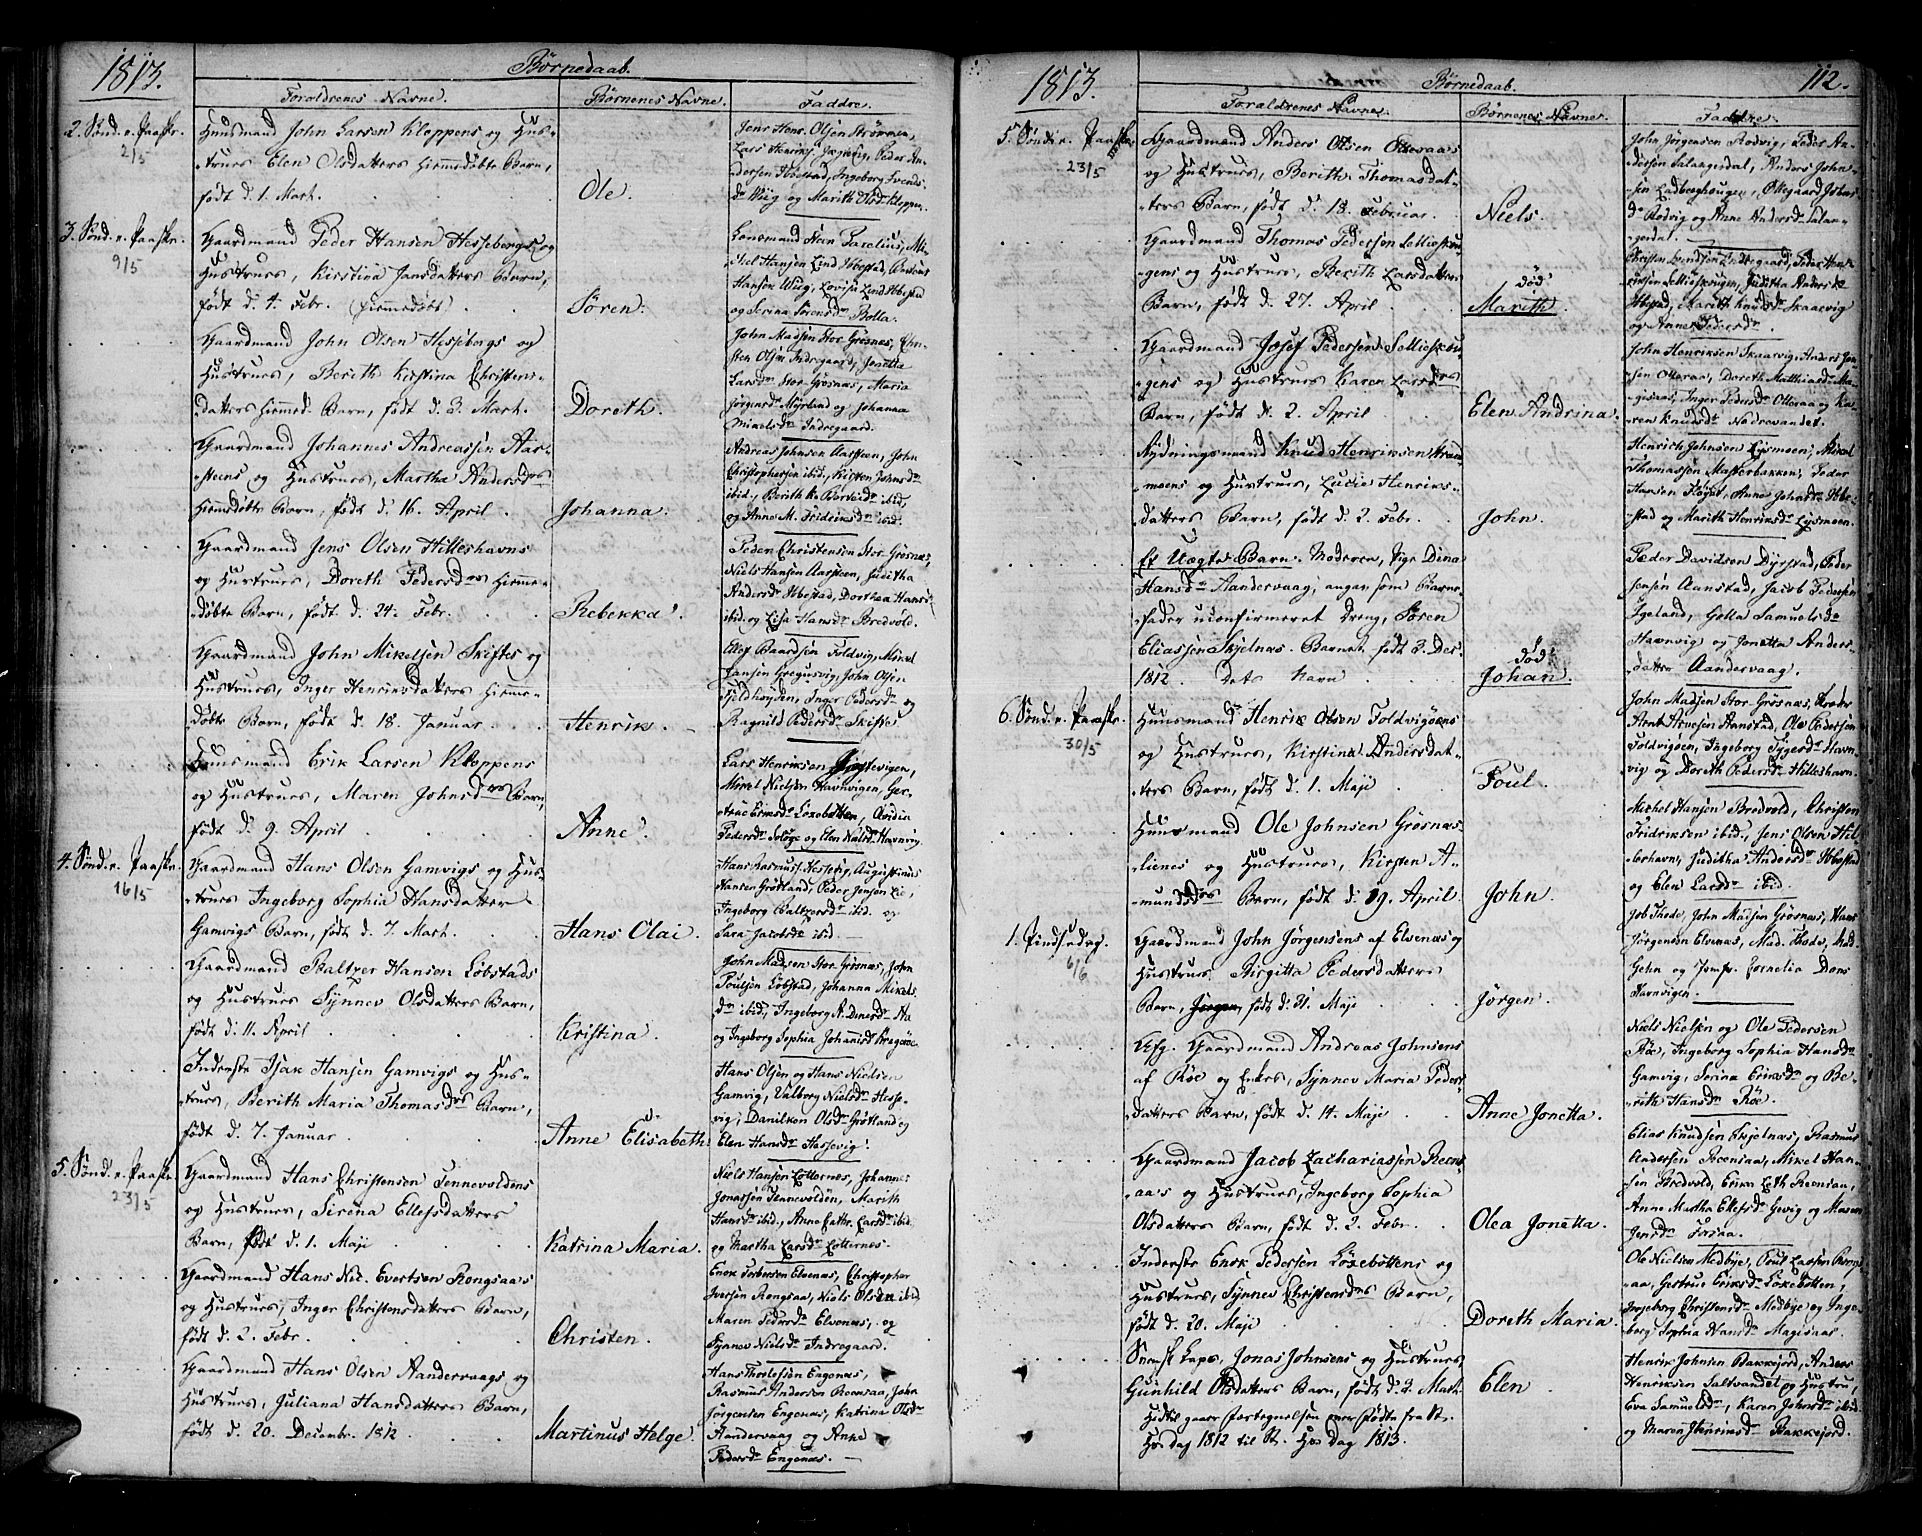 1813.
Børnedaab.
Forældrenes Navne.
Børnenes Navne.
Faddre.
2. Sønd. e. Paaske.
2/5
Huusmand John Larsen Kloppens og Hus-
-trues Elen Olsdatters hiemmedøbte Barn,
født d. 1. Mart.
Ole.
Jens Hens. Olsen Strømmen,
Lars Henriks. Peder An-
dersen Ibbestad, Ingeborg Svends-
dr Wiig og Marith Olsdr Kloppen.
3. Sønd. e. Paaske.
9/5
Gaardmand Peder Hansen Hessebergs og
Hustrues, Kirstina Jansdatters Barn,
født d. 4. Febr. (hiemmedøbt)
Sören.
Lensmand Normann Parelius, Mi-
kel Hansen Lind Ibbestad,
Hansen Wiig, Lovisa Lind Ibbestad
og Serina Sørensdr Rolla.
Gaardmand John Olsen Hessebergs og
Hustrues, Berith Kirstina Christens-
datters hiemmed. Barn, født d. 3. Mart.
Doreth.
John Madsen Stor Grøsnæs,
sten Olsen Indregaard, Jonetta
Larsdr Stor-Grøsnæs, Maria
Jørgensdr Myrland og Johanna
Mikelsdr Indregaard.
Gaardmand Johannes Andreassen Aar-
steens og Hustrues, Martha Andersdrs
hiemmedøbte Barn, født d. 16. April.
Johanna.
Andreas Johnsen Aarsteen, John
Christophersen ibid, Kirsten Johnsdr
ibid., Berith K. ibid,
og Anne M. Fridriksdr ibid.
Gaardmand Jens Olsen Hilleshavns
og Hustrues, Doreth Pedersdrs hiemme-
døbte Barn, født d. 24. Febr.
Rebekka.
Peder Christensen Stor Grøsnæs,
Niels Hansen Aarsteen, Juditha
Andersdr Ibbestad, Dorthea Hansdr
ibid. og Lisa Hansdr Bredvold.
Gaardmand John Mikelsen Skiftes og
Hustrues, Inger Henriksdatters hiemme-
døbte Barn, født d. 18. Januar.
Henrik.
Olef Baardsen Foldvig, Mikel
Jansen Gregusvig, John Olsen
Fieldhøyden, Inger Pedersdr og
Ragnild Pedersdr Skifte.
Huusmand Erik Larsen Kloppens
og Hustrues, Maren Johnsdrs Barn,
født d. 9. April
Anne.
Lars Henriksen
Mikel Nielsen Havnvigen, Ger-
true Ermsdr Loxebotten,
Pedersdr og Elen Nielsdr Havnvig.
4. Sønd. e. Paaske.
16/5
Gaardmand Hans Olsen Gamvigs og Hus-
-trues Ingeborg Sophia Hansdatter
Gamvigs Barn, født d. 7. Mart.
Hans Olai.
Hans Rasmus. Hessevig, Augustinus
Hansen Grøtland, Peder Jensen Lie,
Ingeborg Baltzersdr ibid. og
Sara Jacobsdr ibid.
Gaardmand Baltzer Hansen Løbstads
og Hustrues Synnev Olsdatters Barn,
født d. 11. April
Cristina.
John Madsen Stor Grøsnæs, John
Poulsen Løbstad, Johanna Mikels-
dr ibid, Ingeborg
og Ingeborg Sophia Johansdr Kragerøe.
Inderste Isak Hansen Gamvigs og Hus-
-trues, Berith Maria Thomasdrs Barn,
født d. 7. Januar
Anne Elisabeth.
Hans Olsen og Hans Nielsen
Gamvig, Valborg Nielsdr Hesse-
vig, Olsdr Grøtland og
Elen Hansdr Hessevig.
5. Sønd. e. Paaske
23/5
Gaardmand Hans Christensen Tennevoldens
og Hustrues, Sirena Ellefsdatters
Barn, født d. 1. Maji
Katrina Maria.
Niels Hansen Lotternes, Johannes
Jonassen Tennevolden, Marith
Hansdr ibid., Anne Cathr. Larsdr ibid.
og Martha Larsdr Lotternes.
Gaardmand Hans Nic. Evertsen Rongsaas
og Hustrues, Inger Christensdatters Barn,
født d. 2. Febr.
Christen.
Enok Torbersen Elvenæs, Christopher
Iversen Rongsaa, Niels Olsen ibid
Maren Pedersdr Elvenæs, og
Synnev Nielsdr Indregaard.
Gaardmand Hans Olsen Aandervaags og
Hustrues, Juliana Hansdatters Barn,
født d. 20. Decembr. 1812
Martinus Helge.
Hans Thorlefsen Engenæs,
Rasmus Andersen Reensaa, John
Jørgensen Engenæs, Katrina Olsdr
Aandervaag og Anne
Pedersdr Engenæs.
1813.
Børnedaab.
112.
Forældrenes Navne.
Børnenes Navne.
Faddre.
5. Sønd. e. Paaske.
23/5
Gaardmand Anders Ottsen Otteraas
og Hustrues, Berith Thomasdat-
-ters Barn, født d. 18. Februar.
Niels.
John Jørgensen Rodvig, Peder An-
dersen Salangsdal, Anders John-
sen Ladberghougen, Ottegaard Johns-
dr Rodvig og Anne Andersdr Salan-
gsdal.
Gaardmand Thomas Pedersen Sellieskou-
gens og Hustrues, Berith Larsdatters
Barn, født d. 27. April.
død
Marith.
Christen Bendixen Indregaard, Peder Hen-
riksen Sellieskougen, Juditha Andersdr
Ibbestad, Marith Knudsdr Skaarvig
og Anne Pedersdr.
Gaardmand Josef Pedersen Sellieskou-
gens og Hustrues Karen Larsdrs
Barn, født d. 2. April
Elen Andrina.
John Henriksen Skaarvig, Anders Jon-
sen Otteraa, Doreth Matthiasdr Ma-
gisaas, Inger Pedersdr Otteraa og Ka-
ren Knudsdr Nedrevandet.
Rydningsmand Knud Henriksen
moens og Hustrues, Lucie Henriks-
datters Barn, født d. 2. Febr.
John.
Henrich Johnsen Lysmoen, Mikel
Thomassen Masterbakken, Peder
Hansen Anne Johnsdr Ibbe-
stad og Marith Henriksdr Lysmoen.
Et Uægte Barn. Moderen, Pige Dina
Hansdr Aandervaag, angav som Barne-
fader uconfirmeret Dreng, Sören
Eliassen Skielnæs. Barnet født 3. Des.
1812. Dets Navn
død
Johan.
Peder Davidsen Dyrstad, Peder
Jensen Aanstad, Jacob Pedersen
Igeland, Golla Samuelsdr
Havnvig og Jonetta Anders-
datter Aandervaag.
6. Sønd. e. Paaske.
30/5
Huusmand Henrik Olsen Foldvigøens
og Hustrues, Kirstina Andersdat-
ters Barn, født d. 1. Maji
Poul.
John Madsen Stor Grøsnæs,
Arnt Arnesen Aanstad, Ole Pedersen
Foldvigøen, Ingeborg Sygersdr Havn-
vig og Doreth Pedersdr Hilleshavn.
Huusmand Ole Johnsen Grøsnæs-
lienes og Hustrues, Kirsten A-
mundsdrs Barn, født d. 19. April.
John.
Mikkel Hansen Bredvold, Christen
Fridriksen ibid., Jens Olsen Hil-
leshavn, Juditha Andersdr Ibbestad
og Elen Larsdr ibid.
1. Pindsedag.
6/6
Gaardmand John Jørgensens af Elvenæs og
Hustrues Birgitta Pedersdatters
Barn, født d. 31. Maji
Jörgen.
Job Thode, John Madsen Grøsnæs, Hans
Jørgensen Elvenæs, Mad. Thode, Mad.
Gehn og Jomfr. Cornelia Dons
Havnvigen.
Afg. Gaardmand Andreas Johnsens
af Røe og Enkes, Synnev Maria Peders-
datters Barn, født d. 14. Maji
Anne Jonetta.
Niels Nielsen og Ole Pedersen
Røe, Ingeborg Sophia Hansdr
Gamvig, Serina Eriksdr og Be-
rith Hansdr Røe.
Gaardmand Jacob Zachariassen Reens-
aas og Hustrues, Ingeborg Sophia
Olsdatters Barn, født d. 2. Febr.
Olea Jonetta.
Elias Knudsen Skjelnæs, Rasmus
Andersen Reensaa, Mikel Han-
sen Bredvold, Leth Reensaa,
Anne Martha Ellefsdr Gevig og Maren
Jensdr Forsaa.
Inderste Enok Pedersen Löxebottens og
Hustrues, Synnev Christensdrs Barn,
født d. 20. Maji
Doreth Maria.
Ole Nielsen Medbye, Poul Larsen Rongs-
aa, Gertrue Eriksdr Löxebotten,
Ingeborg Christensdr Medbye og Inge-
borg Sophia Hansdr Magisaas.
Svensk Lapp, Jonas Johnsens og Hustrues
Gunhild Olsdatters Barn, født d. 2. Mart.
Elen.
Hidtil gaaer Fortegnelsen over Fødte fra St.
Hs dag 1812 til St. Hs Dag 1813.
Henrik Johnsen Bakkejord, Anders
Henriksen Saltvandet og Hustrue,
Eva Samuelsdr, Karen Johnsdr ibid.
og Maren Henriksdr Bakkejord.